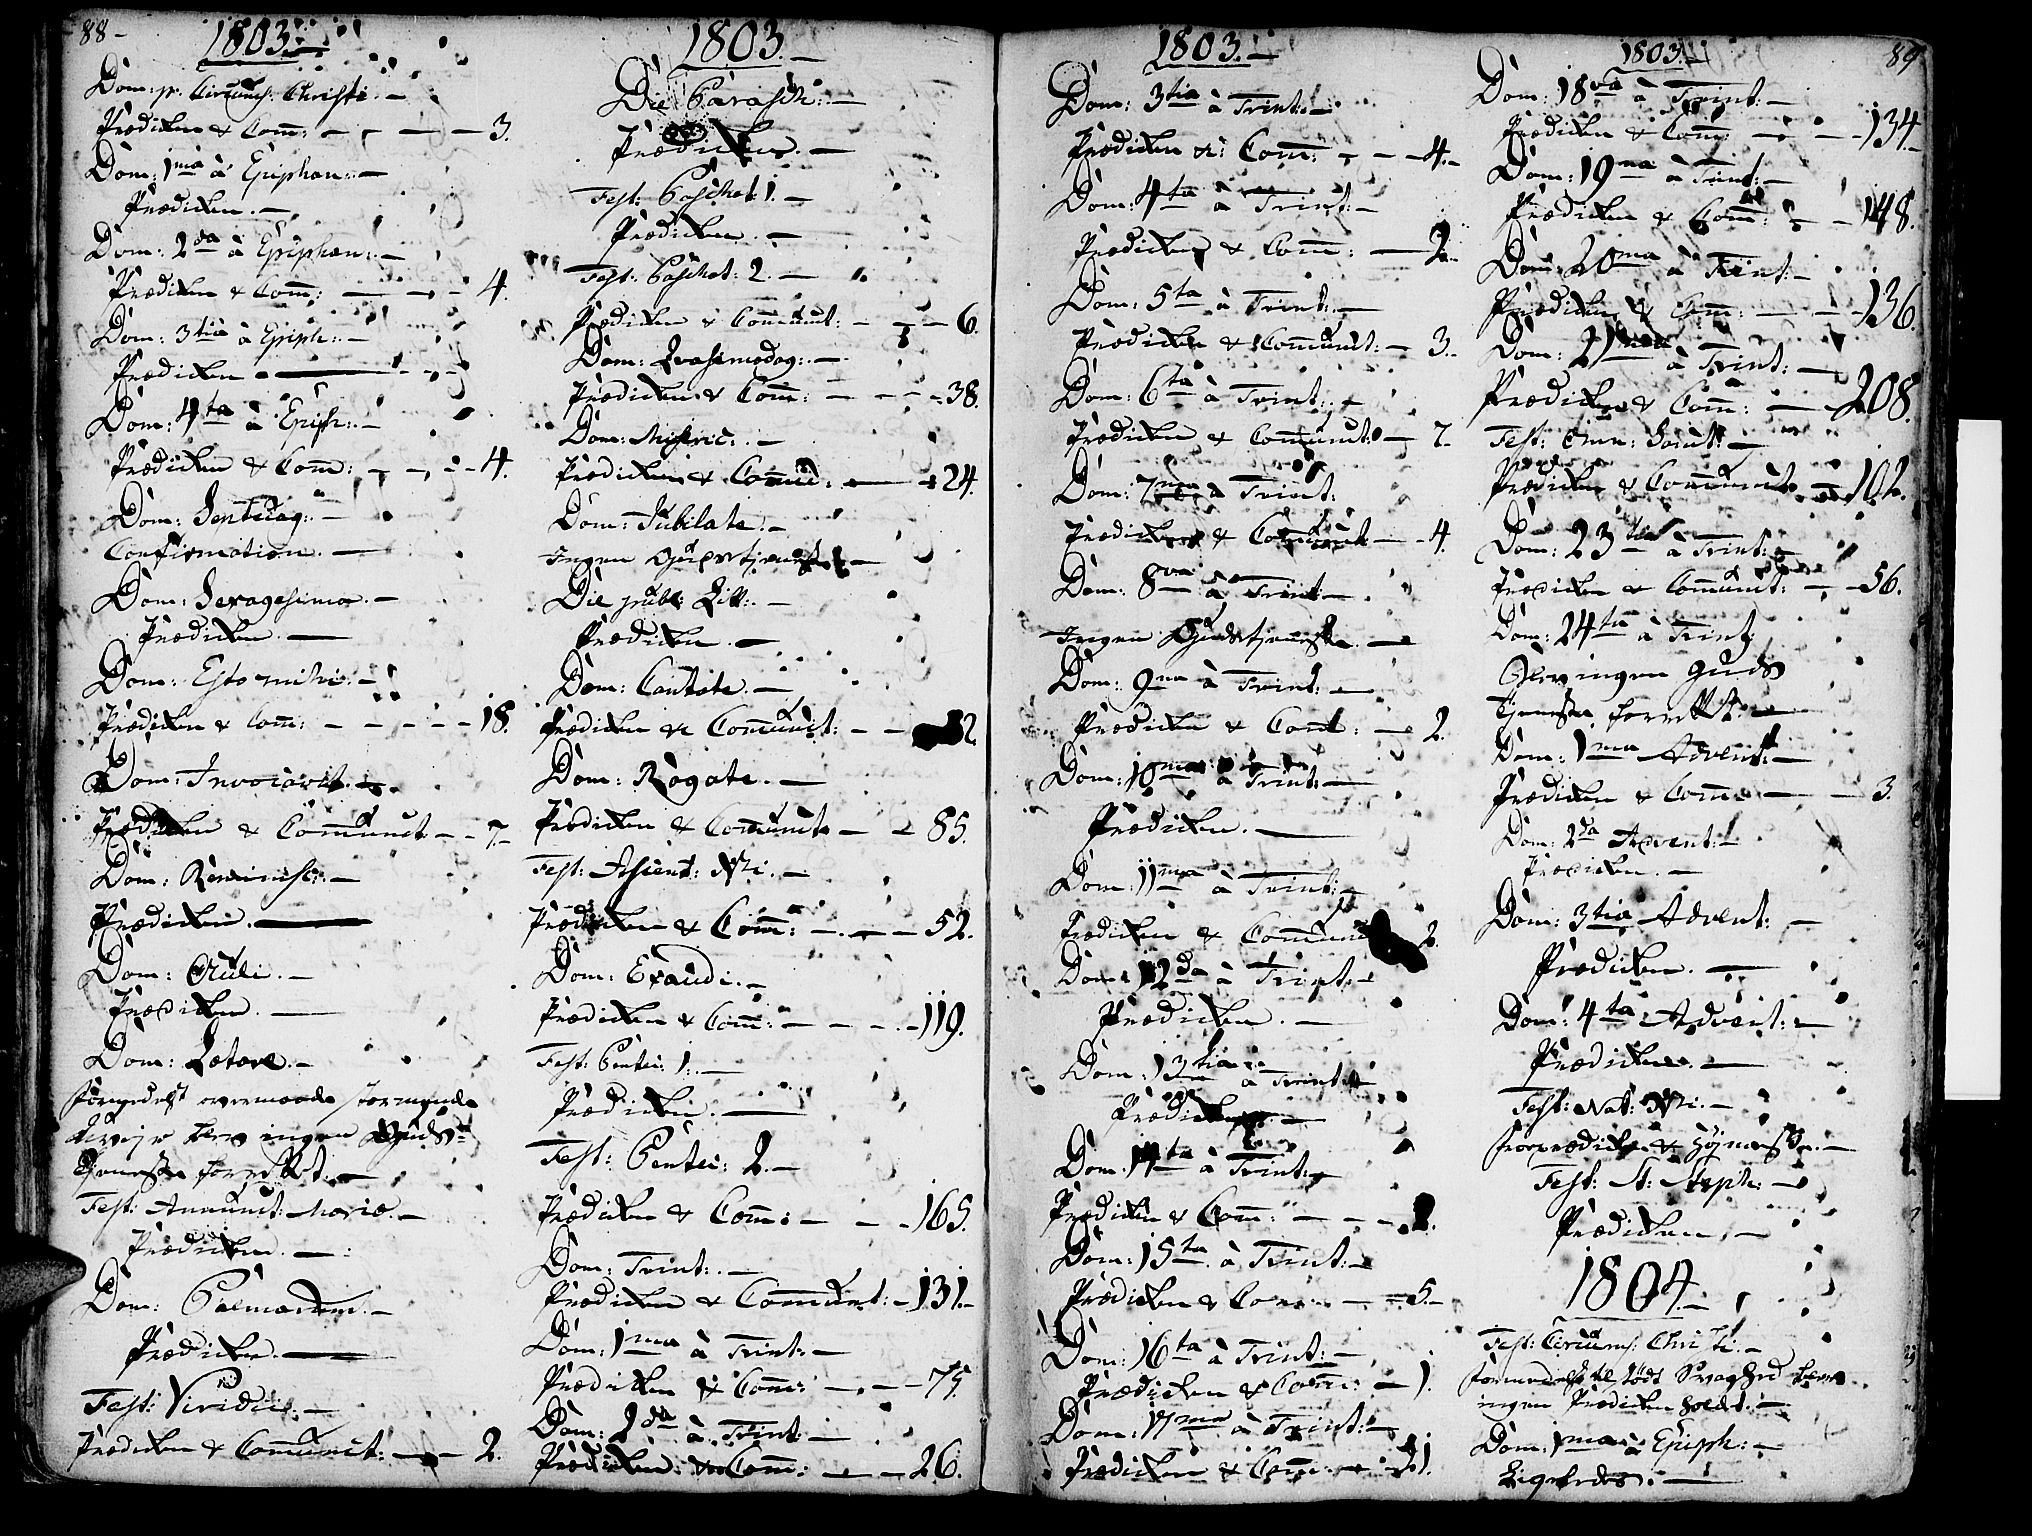 88-
1803.
Dom: p. Circumcs: Christi.-
Prædicken & Com̄: - - - - 3.
Dom: 1ma à Epiphan:-
Prædicken.-
Dom: 2da à Epiphan:-
Prædicken & Com̄: - - - 4.
Dom: 3tia à Epiph:-
Prædicken
Dom: 4ta à Epiph:-
Prædicken & Com̄: - - - 4.
Dom: Septuag:-
Confirmation.-
Dom: Sexagesima.-
Prædicken.-
Dom: Esto mihi.-
Prædicken & Com̄: - - - - 18.
Dom: Invocavit.-
Prædicken & Com̄unict - - 7.-
Dom: Reminisc:-
Prædicken.-
Dom: Oculi.-
Prædicken.-
Dom: Lætare.-
formedelst overmaade stormende
Veir blev ingen Guds-
Tjeneste forrettet.-
Fest: Annunct: Mariæ.-
Prædicken.-
Dom: Palmarum.-
Prædicken.-
Fest: Viridii.-
Prædicken & Com̄unict: - - 2.
1803.-
Die Parasch:-
Prædicken.-
Fest: Paschat: 1.-
Prædicken.-
Fest: Paschat: 2.-
Prædicken & Com̄unict: - - - 6.
Dom: Quasimodog:-
Prædicken & Com̄: - - - - 38.
Dom: Miseric:-
Prædicken & Com̄u: - - 24.
Dom: Jubilate.-
Ingen Gudstjeneste.-
Die publ: Litt:-
Prædicken.-
Dom: Cantate.-
Prædicken & Com̄unict: - - 2.
Dom: Rogate.-
Prædicken & Com̄unict - - 85.
Fest: Ascent: Xti.-
Prædicken & Com̄: - - - 52.
Dom: Exaudi.-
Prædicken & Com̄: - - - - 119.
Fest: Pentec: 1.-
Prædicken.-
Fest: Pentec: 2.-
Prædicken & Com̄: - - - 165.
Dom: Trint:-
Prædicken & Com̄unict: - 131.-
Dom: 1ma à Trint:-
Prædicken & Com̄: - - - 75.
Dom: 2da à Trint:-
Prædicken & Com̄: - - 26.
1803.-
Dom: 3tia à Trint:-
Prædicken & Com̄: - - - 4.-
Dom: 4ta à Trint:-
Prædicken & Com̄: - 2.-
Dom: 5ta à Trint:-
Prædicken & Com̄unict: - 3.-
Dom: 6ta à Trint:-
Prædicken & Com̄unict: - 7.-
Dom: 7ma à Trint:
Prædicken & Com̄unict - - 4.
Dom: 8va à Trint:-
Ingen Gudstjeneste.-
Dom: 9na à Trint:-
Prædicken & Com̄: - 2.
Dom: 10ma à Trint:-
Prædicken.-
Dom: 11ma à Trint:-
Prædicken & Com̄un 2.
Dom: 12da à Trint:-
Prædicken.-
Dom: 13tia à Trint:-
Prædicken.-
Dom: 14ta à Trint:-
Prædicken & Com̄: - - -
Dom: 15ta à Trint:-
Prædicken & Com̄: - - 5.-
Dom: 16ta à Trint:-
Prædicken & Com̄: - 1.
Dom: 17ma à Trint:-
Prædicken & Com̄: - - 21.
1803.-
89
Dom: 18va à Trint:-
Prædicken & Com̄: - - - 134.-
Dom: 19na à Trint:-
Prædicken & Com̄: - - 148.
Dom: 20ma à Trint:-
Prædicken & Com̄: - - - 136.
Dom: 21ma à Trint:-
Prædicken & Com̄: - - 208.
Fest: Omn: Sanct:-
Prædicken & Com̄unict - 102.
Dom: 23tia à Trint:-
Prædicken & Com̄unict: - - 56.
Dom: 24ta à Trint:
Blev ingen Guds
Tjeneste forrettet.-
Dom: 1ma Advent:-
Prædicken & Com̄: - - 3.
Dom: 2da Advent:-
Prædicken.-
Dom: 3tia Advent:-
Prædicken.-
Dom: 4ta Advent:-
Prædicken.-
Fest: Nat: Xti.-
froeprædicken & Højmesse.-
Fest: St: Steph:-
Prædicken.-
1804.-
Fest: Circums: Christi.-
formedelst tilstødt Svaghed blev
ingen Prædicken holdt.-
Dom: 1ma à Epiph:-
Ligeledes.-